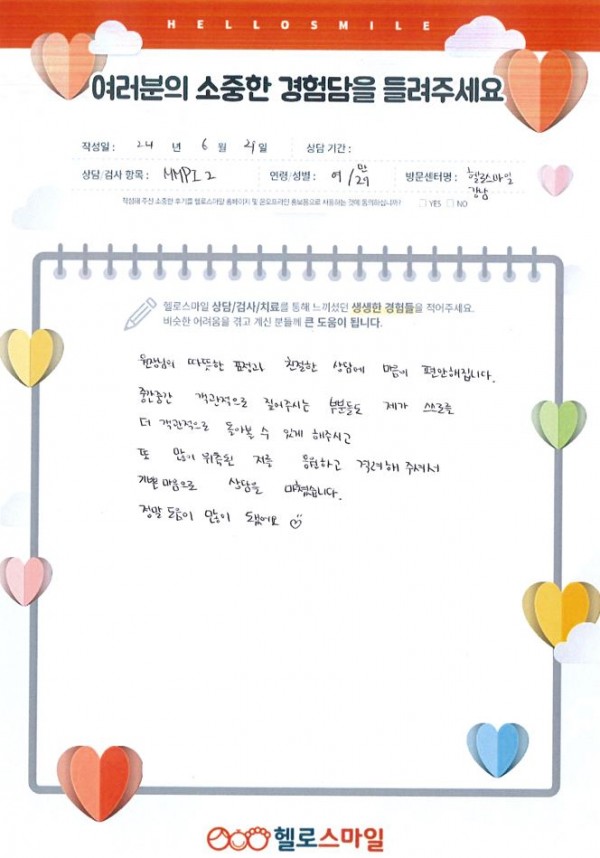 HELLOSMILE
여러분의 소중한 경험담을 들려주세요
작성일 : 24 년 6 월 29 일 상담 기간 :
상담/검사 항목 : MMPI 2 연령/성별 : 여 / 만 29 방문센터명 : 헬로스마일 강남
작성해 주신 소중한 후기를 헬로스마일 홈페이지 및 온오프라인 홍보용으로 사용하는 것에 동의하십니까? YES NO
헬로스마일 상담/검사/치료를 통해 느끼셨던 생생한 경험들을 적어주세요.
비슷한 어려움을 겪고 계신 분들께 큰 도움이 됩니다.
원장님의 따뜻한 표정과 친절한 상담에 마음이 편안해집니다.
중간중간 객관적으로 짚어주시는 부분들도 제가 스스로를
더 객관적으로 돌아볼 수 있게 해주시고
또 많이 위축된 저를 응원하고 격려해 주셔서
가벼운 마음으로 상담을 마쳤습니다.
정말 도움이 많이 됐어요
헬로스마일